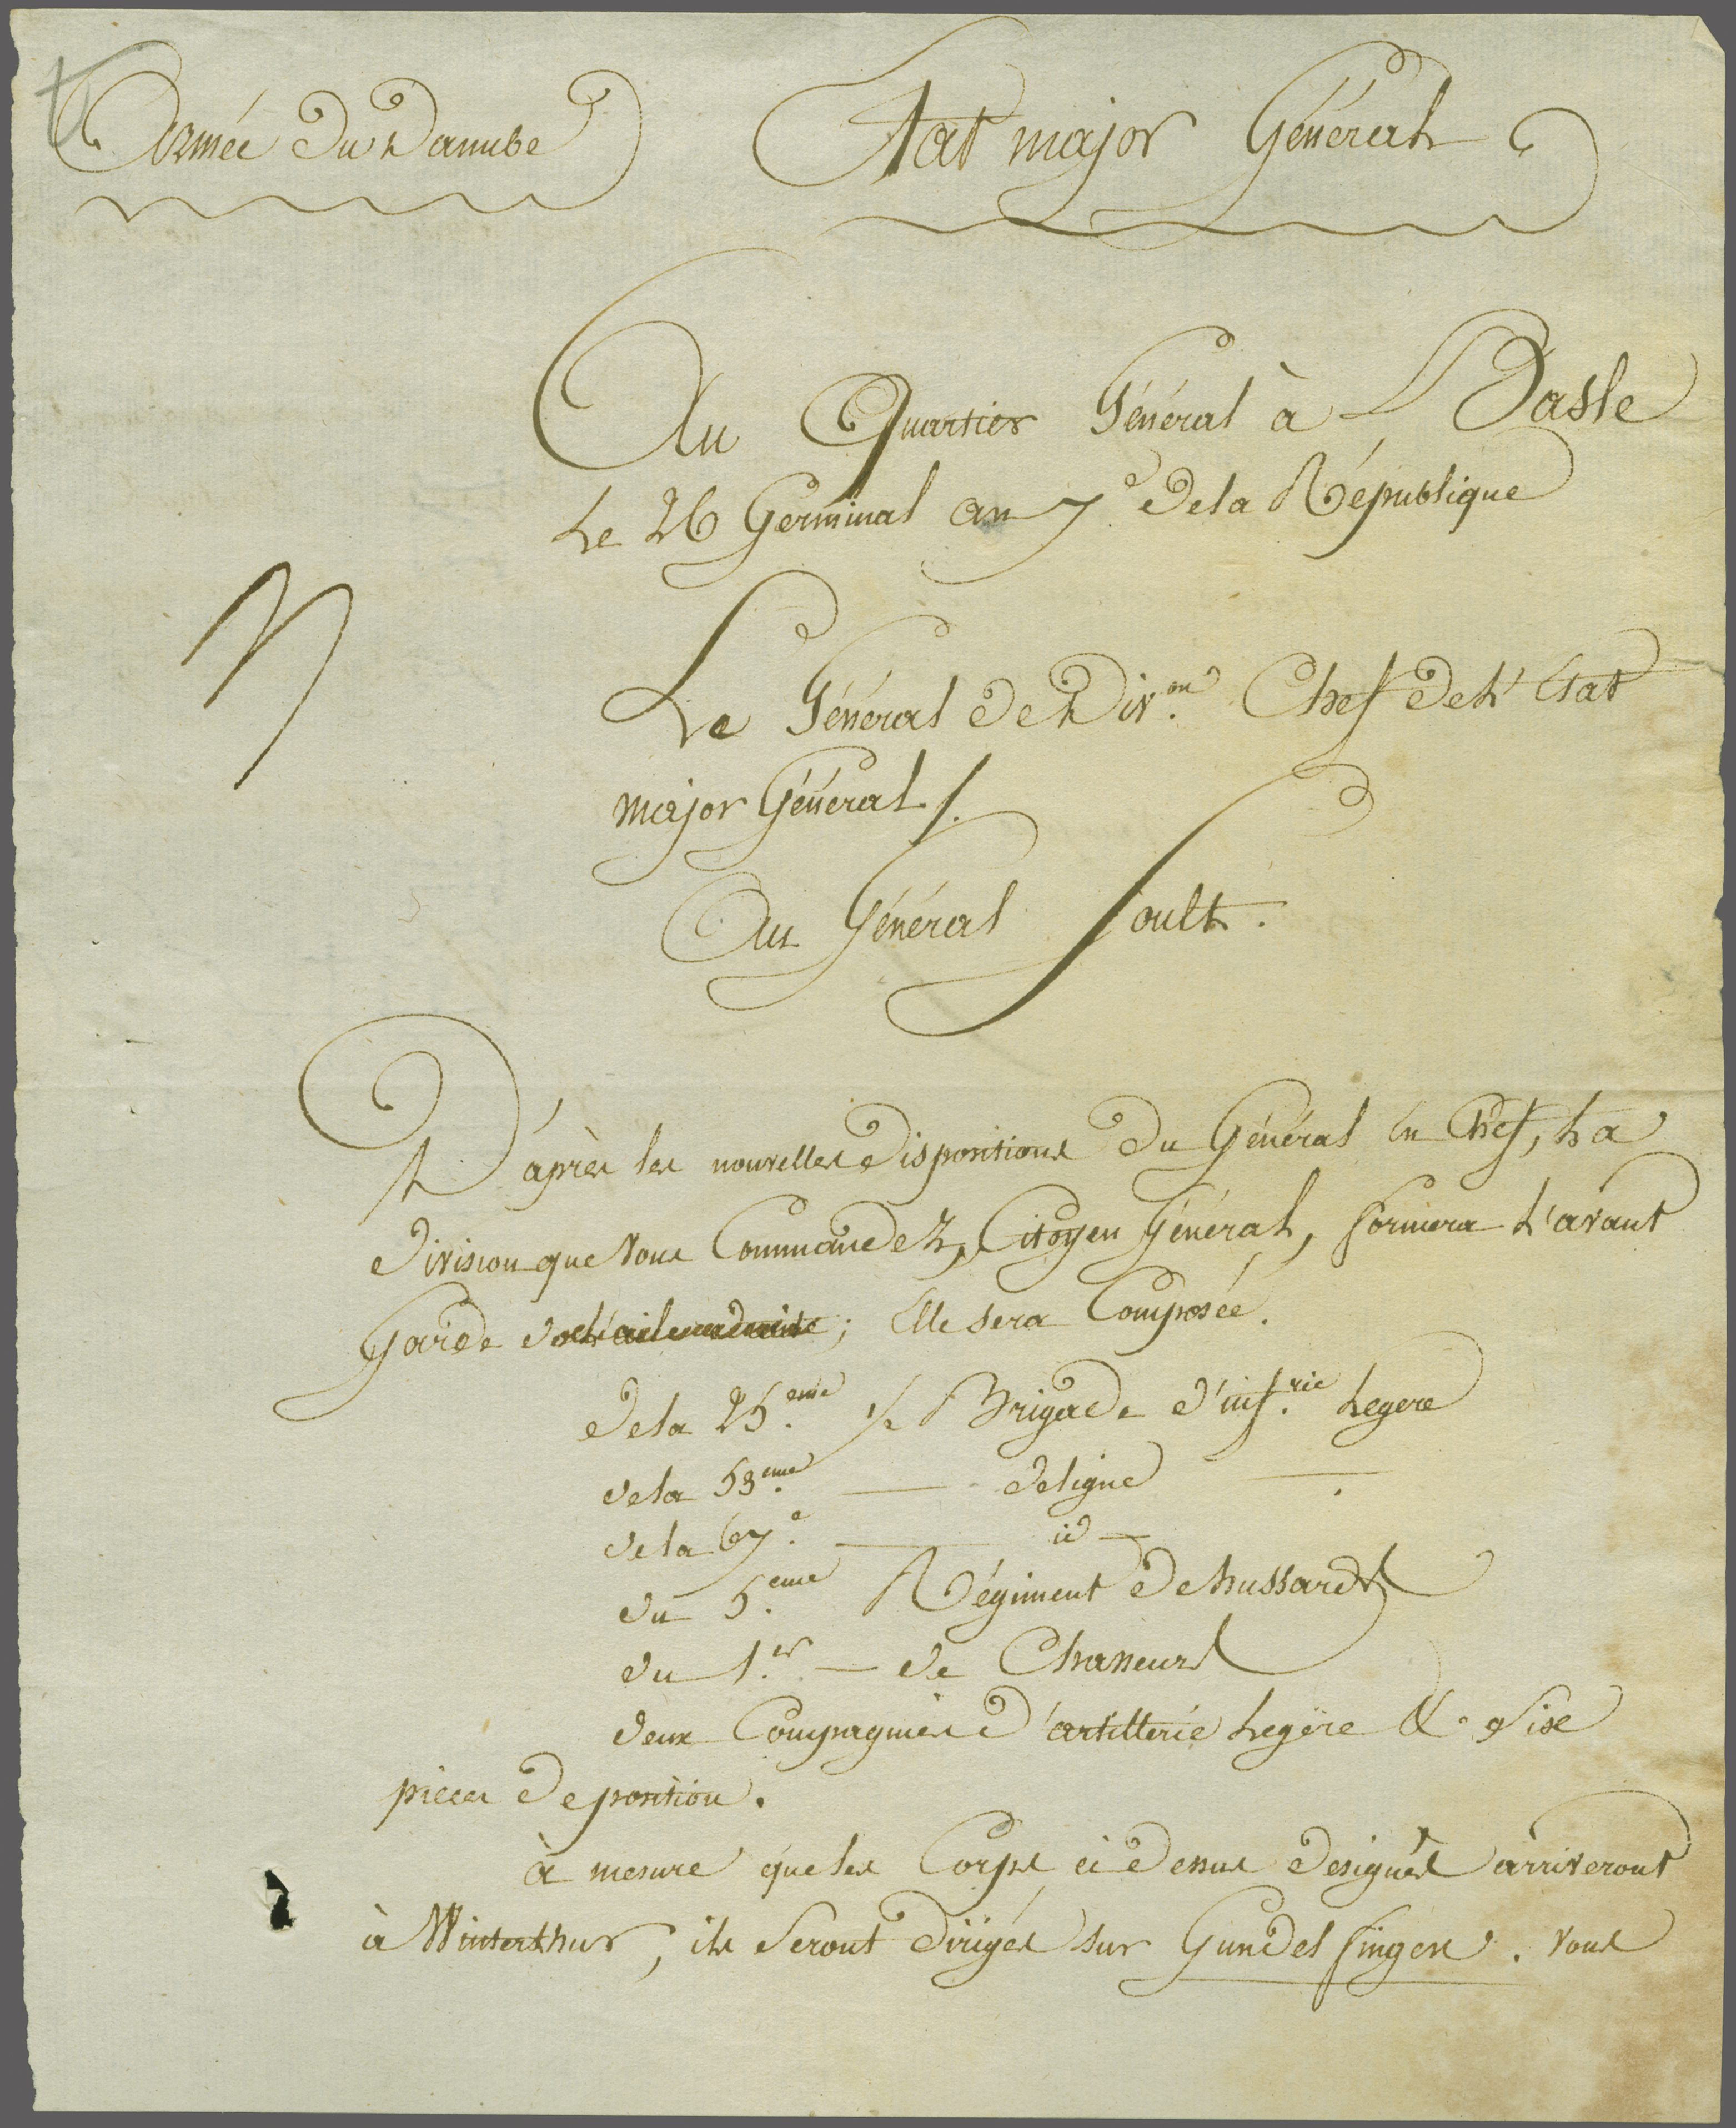 Armée du Danube Etat major Général
Au Quartier Général à Basle
Le 26 Germinal an 7.e de la République
Le Général de Div.on Chef de L'Etat
major Général /.
Au Général Soult.
D'après les nouvelles dispositions du Général en Chef, La
division que vous Commandez, Citoyen Général, formera L'avant
Garde de L'aile droite; Elle sera Composée.
de la 25.eme 1/2 Brigade d'inf.rie Legere
de la 53.eme — de ligne —.
de la 67.e — id —
du 5.eme Régiment de hussards
du 1.er — de Chasseurs
deux Compagnies d'artillerie Legère & Six
pièces de position.
à mesure que les Corps ci dessus designés arriveront
à Winterthur, ils seront dirigés sur Gundelfingen. vous